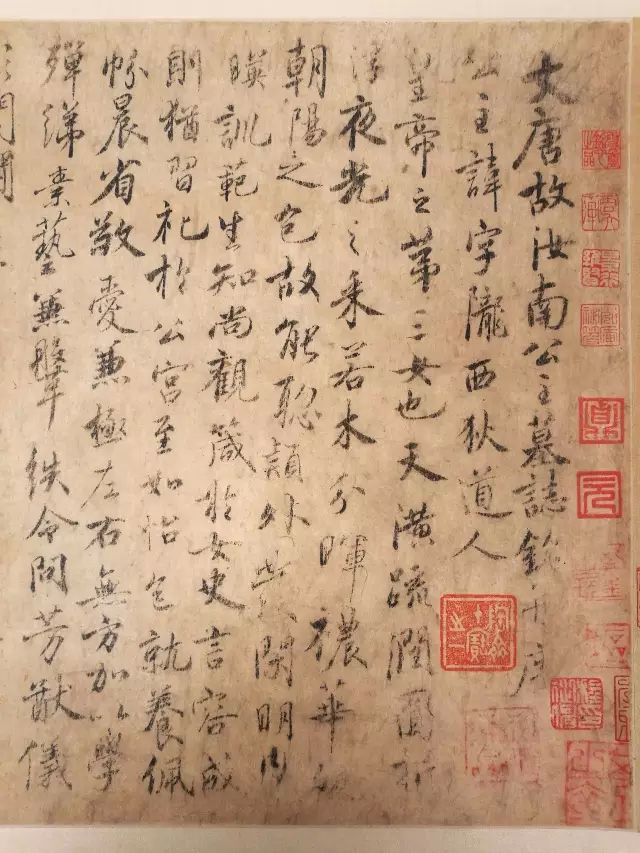 大唐故汝南公主墓誌銘并序
公主諱字隴西狄道人
皇帝之第三女也天潢疏潤圓折
浮夜光之采若木分暉穠華
朝陽之色故能聡穎外發閑明内
暎訓範生知尚觀箴於女史言容成
則猶習礼於公宮至如怡色就養佩
帉晨省敬愛兼極左右無方加以學
殫綈素藝兼鞶紩令問芳猷儀